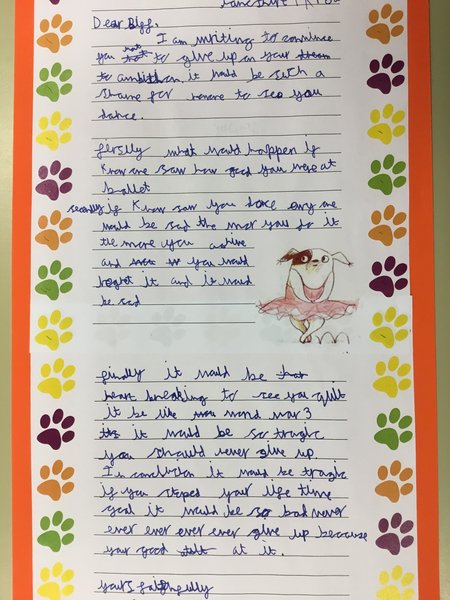 Dear Biff,
I am writing to convince
you not to give up on your
to ambition it would be such a
shame for to see you
dance.
firstly what would happen if
know one saw how good you were at
ballet
secondly if know saw you dance eny one
would be sad the mor you do it
the more you achive
and you would
it and it would
be sad
finally it would be
heart breaking to see you quit
it be like world war 3
it would be so tragic
you should never give up.
In conclusion it would be tragic
if you stoped your life time
goal it would be so bad never
ever ever ever ever give up because
your good at it.
yours faithfully